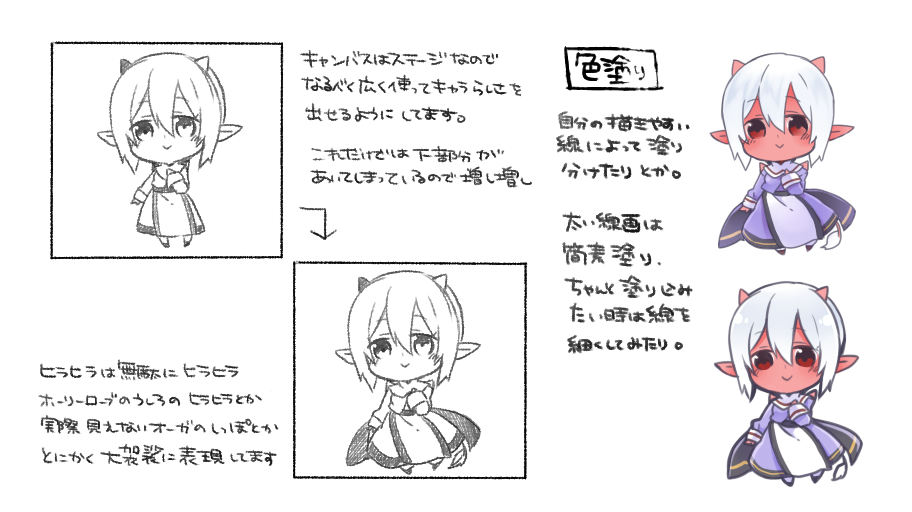 キャンバスはステージなので
なるべく広く使ってキャラらしさを
出せるようにしてます。
これだけでは下部分が
あいてしまっているので増し増し
ヒラヒラは無駄にヒラヒラ
ホーリーローブのうしろのヒラヒラとか
実際見えないオーガのしっぽとか
とにかく大袈裟に表現してます
色塗り
自分の描きやすい
線によって塗り
分けたりとか。
太い線画は
簡素塗り、
ちゃんと塗り込み
たい時は線を
細くしてみたり。